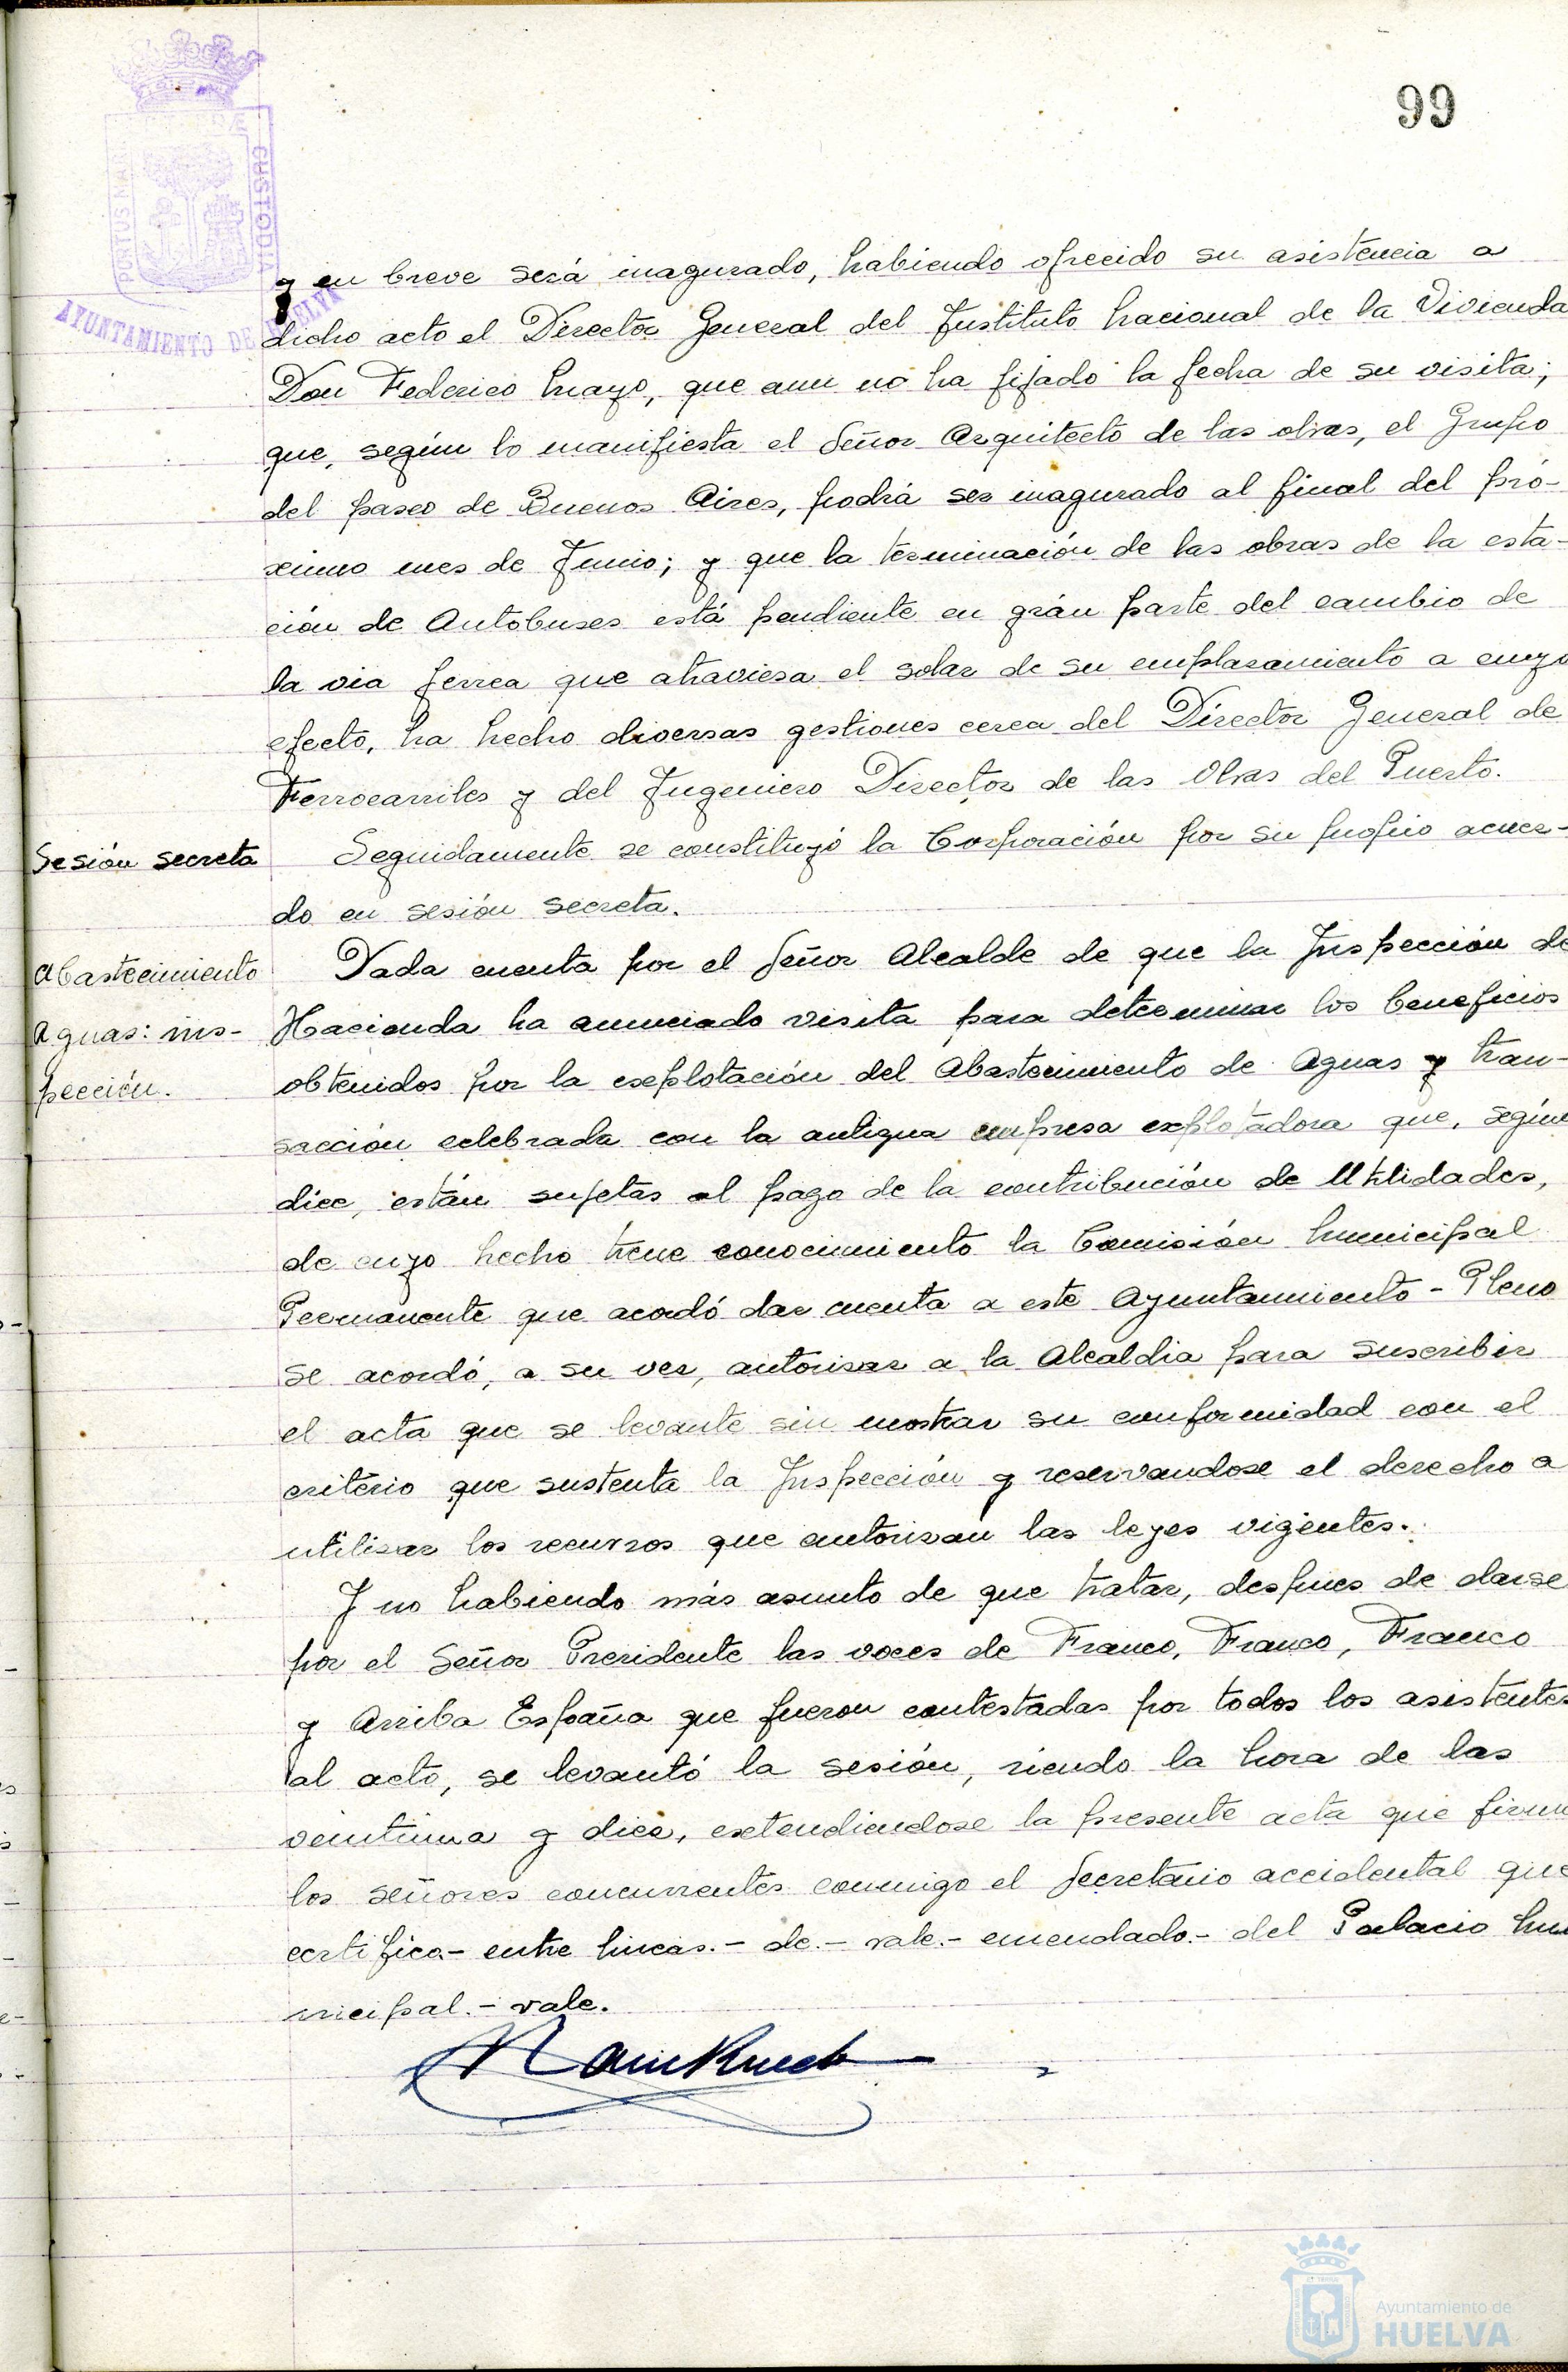 99
PORTUS MARIS
CUSTODIA
AYUNTAMIENTO DE HUELVA
y en breve será inagurado, habiendo ofrecido su asistencia a
dicho acto el Director General del Instituto Nacional de la Vivienda
Don Federico Mayo, que aun no ha fijado la fecha de su visita;
que, según lo manifiesta el Señor Arquitecto de las obras, el Grupo
del paseo de Buenos Aires, podrá ser inagurado al final del pró-
ximo mes de Junio; y que la terminación de las obras de la esta-
ción de Autobuses está pendiente en grán parte del cambio de
la via ferrea que atraviesa el solar de su emplasamiento a cuyo
efecto, ha hecho diversas gestiones cerca del Director General de
Ferrocarriles y del Ingeniero Director de las Obras del Puerto.
Sesión secreta
Seguidamente se constituyó la Corporación por su propio acuer-
do en sesión secreta.
Abastecimiento
Aguas: ins-
pección.
Dada cuenta por el Señor Alcalde de que la Inspección de
Hacienda ha anunciado visita para determinar los beneficios
obtenidos por la explotación del Abastecimiento de Aguas y tran-
sacción celebrada con la antigua empresa explotadora que, según
dice, están sujetas al pago de la contribución de Utilidades,
de cuyo hecho tiene conocimiento la Comisión Municipal
Permanente que acordó dar cuenta a este Ayuntamiento - Pleno
se acordó, a su ves, autorisar a la Alcaldia para suscribir
el acta que se levante sin mostrar su conformidad con el
criterio que sustenta la Inspección y reservandose el derecho a
utilisar los recursos que autorisan las leyes vigentes.
Y no habiendo más asunto de que tratar, despues de darse
por el Señor Presidente las voces de Franco, Franco, Franco
y Arriba España que fueron contestadas por todos los asistentes
al acto, se levantó la sesión, siendo la hora de las
veintiuna y dies, extendiendose la presente acta que firman
los señores concurrentes conmigo el Secretario accidental que
certifico.- entre lineas.- de.- vale.- enmendado.- del Palacio Mu
nicipal.- vale.
Ayuntamiento de
HUELVA